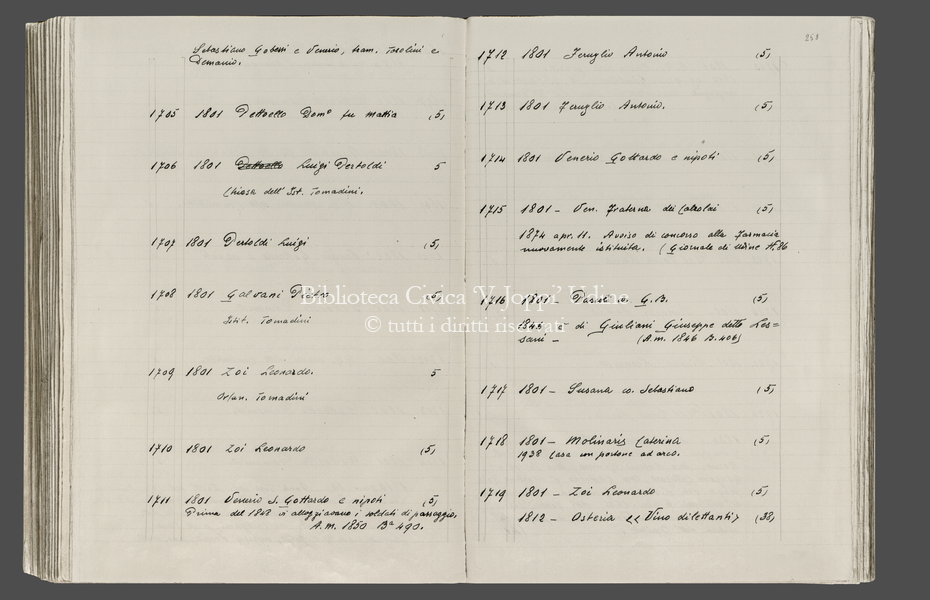 Sebastiano Gobessi e Venerio, tram. Tosolini e
Demanio.
1705 1801 Dettoello Dom.º fu Mattia (5)
1706 1801 Luigi Bertoldi 5
Chiosa dell' Ist. Tomadini.
1707 1801 Bertoldi Luigi (5)
1708 1801 Galvani (5)
Istit. Tomadini
1709 1801 Zoi Leonardo. 5
Orfan. Tomadini
1710 1801 Zoi Leonardo (5)
1711 1801 Venerio S. Gottardo e nipoti (5)
Prima del 1848 vi alloggiavano i soldati di passaggio.
A.M. 1850 Bª 490.
251
1712 1801 Feruglio Antonio (5)
1713 1801 Feruglio Antonio. (5)
1714 1801 Venerio Gottardo e nipoti (5)
1715 1801 – Ven. Fraterna dei (5)
1874 apr. 11. Avviso di concorso alla farmacia
nuovamente istituita. (Giornale di Udine N. 86
1716 1801 – G.B. (5)
di Giuliani Giuseppe detto Les=
sani – (A.m. 1846 B. 406)
1717 1801 – Susana co. Sebastiano (5)
1718 1801 – Molinaris Caterina (5)
1938 Casa con portone ad arco.
1719 1801 – Zoi Leonardo (5)
1812 – Osteria << Vino dilettanti> (38)
Biblioteca Civica 'V. Joppi' Udine
© tutti i diritti riservati